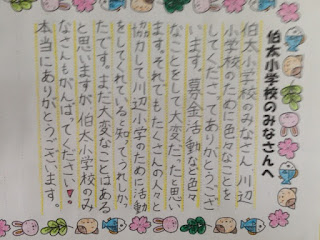 伯太小学校のみなさんへ
伯太小学校のみなさん、川辺
小学校のために色々なことを
してくださってありがとうござ
います。募金活動など色々
なことをして大変だったと思い
ます。それでもたくさんの人々と
協力して川辺小学のために活動
をしてくれていると知ってうれしかっ
たです。まだ大変なことはある
と思いますが、伯太小学校のみ
なさんもがんばってください!
本当にありがとうございます。